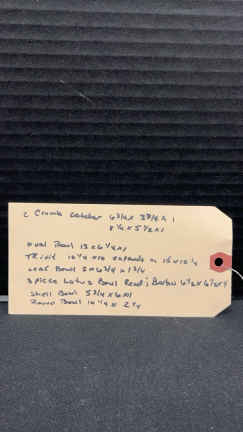 2 Crumb catcher 6 3/4 x 3 3/4 x 1
8 1/4 x 5 1/2 x 1
oval Bowl 13 x 6 1/4 x 1
Trivit 10 1/4 x 10 expands to 15 x 10 1/4
Leaf Bowl 8 x 6 3/4 x 1 3/4
3 piece Lotus Bowl Reed & Barton 6 1/2 x 6 1/2 x 4
Shell Bowl 5 3/4 x 6 x 1
Round Bowl 10 1/4 x 2 1/4